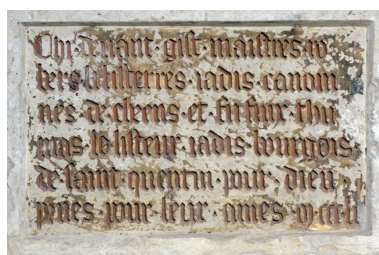 Chi · deuant · gist · maistres · ro
bers · li listeires · iadis · canoin
nes · de · clerus · et · fu · fiux · thu
mas · le listeur · iadis · bourgois ·
de · saint · quentin · pour · dieu
priies · pour · leur · ames ·